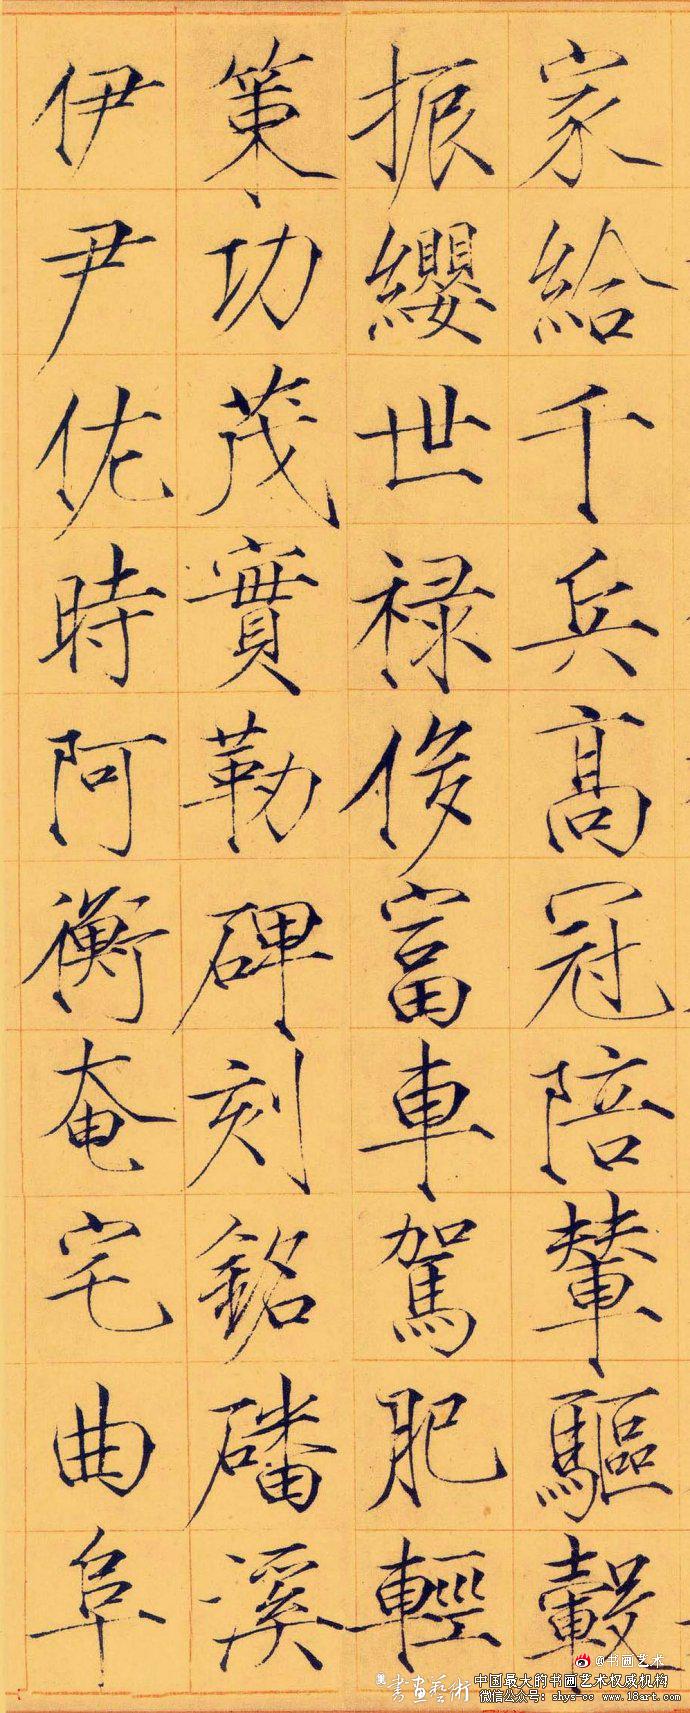 家給千兵高冠陪輦驅轂
振纓世禄侈富車駕肥輕
策功茂實勒碑刻銘磻溪
伊尹佐時阿衡奄宅曲阜
@书画艺术
書畫藝術
中国最大的书画艺术权威机构
微信公众号：shys-cc www.18art.com